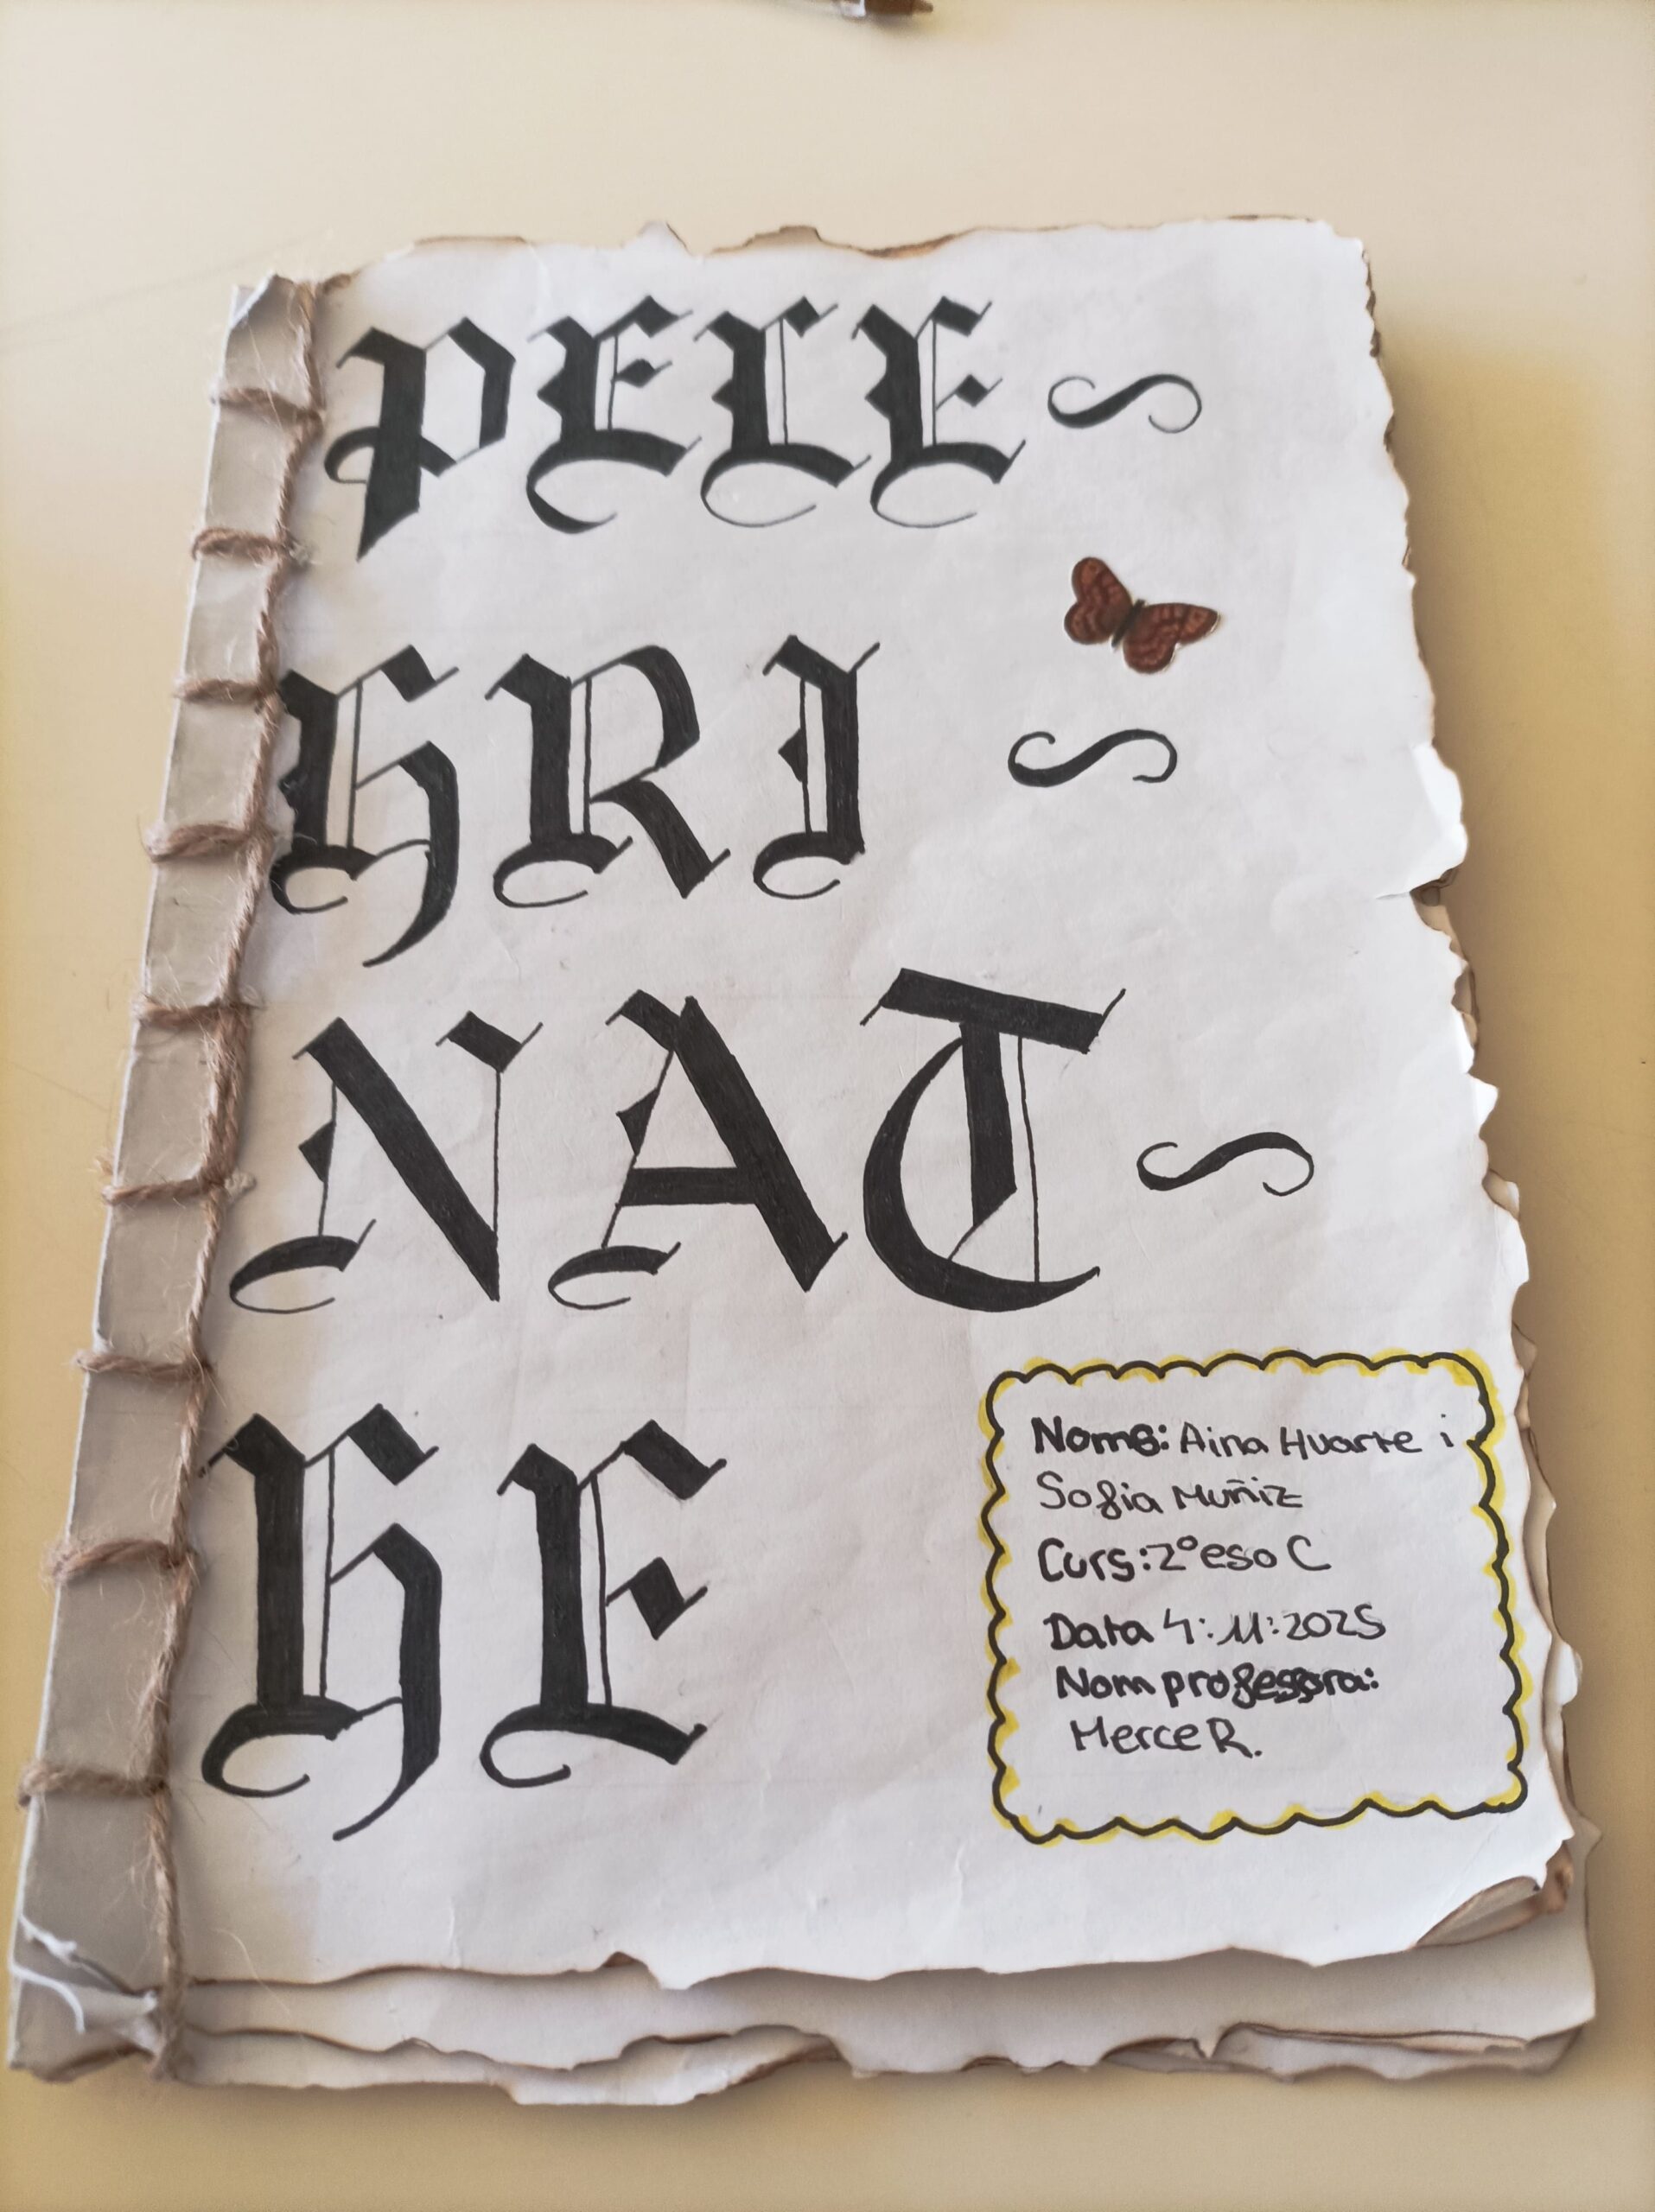 PELE~
GRI ~
NAT~
GE
Noms: Aina Huarte i
Sofia Muñiz
Curs: 2º eso C
Data 4:11:2025
Nom professora:
Merce R.